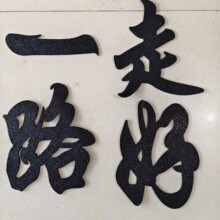 一路
走好